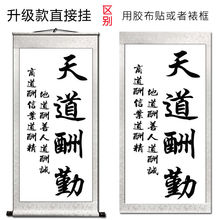 升级款直接挂
区别
用胶布贴或者裱框
天道酬勤
地道酬善人道酬誠
商道酬信業道酬精
天道酬勤
地道酬善人道酬誠
商道酬信業道酬精